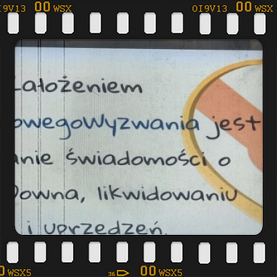 I9V13 00 WSX 0I9V13 00 WSX
Założeniem
owegoWyzwania jest
anie świadomości o
Downa, likwidowaniu
i uprzedzeń.
0 WSX5 36 00 WSX5